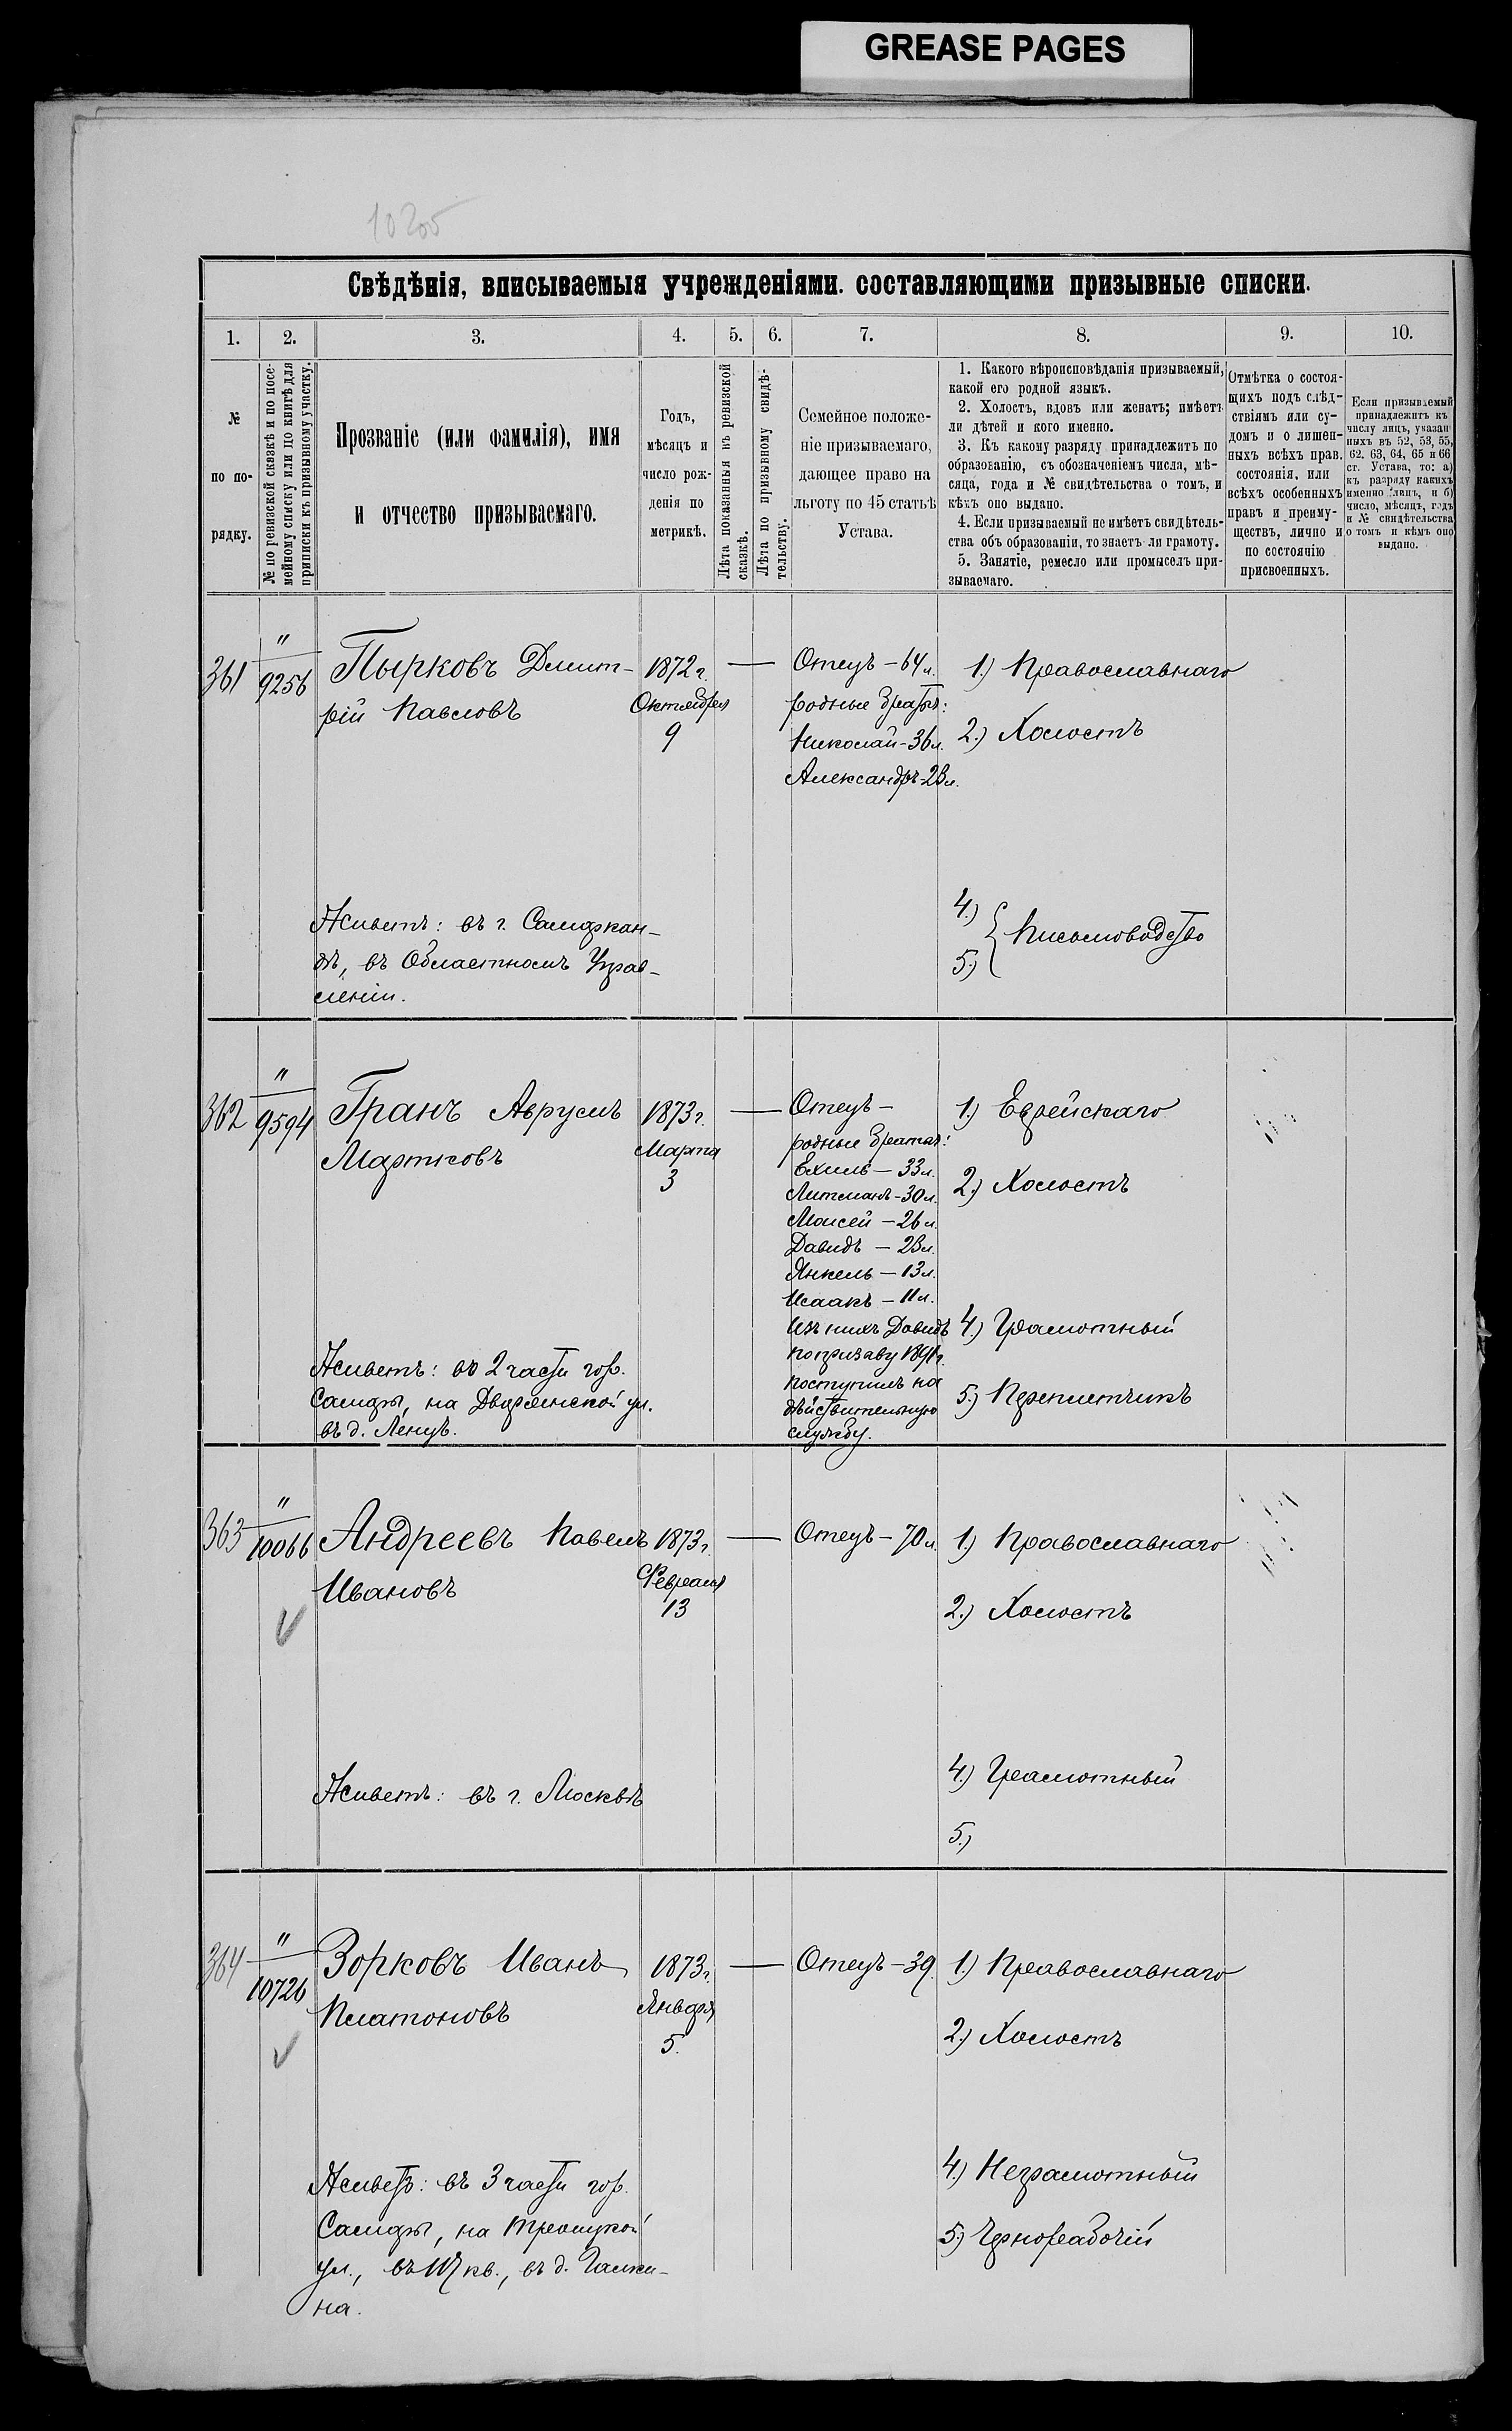 GREASE PAGES
10205
Свѣдѣнія, вписываемыя учрежденіями. составляющими призывные списки.
1.
2.
3.
4.
5.
6.
7.
8.
9.
10.
№
по по-
рядку.
№ по ревизской сказкѣ и по посе-
мейному списку или по книгѣ для
приписки къ призывному участку.
Прозваніе (или фамилія), имя
и отчество призываемаго.
Годъ,
мѣсяцъ и
число рож-
денія по
метрикѣ.
Лѣта показанныя въ ревизской
сказкѣ.
Лѣта по призывному свидѣ-
тельству.
Семейное положе-
ніе призываемаго,
дающее право на
льготу по 45 статьѣ
Устава.
1. Какого вѣроисповѣданія призываемый,
какой его родной языкъ.
2. Холостъ, вдовъ или женатъ; имѣетъ
ли дѣтей и кого именно.
3. Къ какому разряду принадлежитъ по
образованію, съ обозначеніемъ числа, мѣ-
сяца, года и № свидѣтельства о томъ, и
кѣмъ оно выдано.
4. Если призываемый не имѣетъ свидѣтель-
ства объ образованіи, то знаетъ ли грамоту.
5. Занятіе, ремесло или промыселъ при-
зываемаго.
Отмѣтка о состоя-
щихъ подъ слѣд-
ствіямъ или су-
домъ и о лишен-
ныхъ всѣхъ прав.
состоянія, или
всѣхъ особенныхъ
правъ и преиму-
ществъ, лично и
по состоянію
присвоенныхъ.
Если призываемый
принадлежитъ къ
числу лицъ, указан
ныхъ въ 52, 53, 55,
62. 63, 64, 65 и 66
ст. Устава, то: а)
къ разряду какихъ
именно лицъ, и б)
число, мѣсяцъ, годъ
и № свидѣтельства
о томъ и кѣмъ оно
выдано.
361
"
9256
Пырковъ Дмит-
рій Павловъ
1872 г.
Октября
9
—
Отецъ – 64 л.
родные братья:
Николай – 36 л.
Александръ – 23 л.
1.) Православнаго
2.) Холостъ
4.)
5.)
Письмоводство
Живетъ: въ г. Самаркан-
дѣ, въ Областномъ Управ-
леніи.
362
"
9594
Гранъ Аврумъ
Мартковъ
1873 г.
Марта
3
—
Отецъ –
родные братья:
Ехиль – 33 л.
Литманъ – 30 л.
Моисей – 26 л.
Давидъ – 23 л.
Янкель – 13 л.
Исаакъ – 11 л.
Изъ нихъ Давидъ
по призыву 1891 г.
поступилъ на
дѣйствительную
службу.
1.) Еврейскаго
2.) Холостъ
4.) Грамотный
5.) Переплетчикъ
Живетъ: во 2 части гор.
Самары, на Дворянской ул.
въ д. Ленцъ.
363
"
10066
Андреевъ Павелъ
Ивановъ
1873 г.
Февраля
13
—
Отецъ – 70 л.
1.) Православнаго
2.) Холостъ
4.) Грамотный
5.)
Живетъ: въ г. Москвѣ
364
"
10726
Зорковъ Иванъ
Платоновъ
1873 г.
Января
5.
—
Отецъ – 39.
1.) Православнаго
2.) Холостъ
4.) Неграмотный
5.) Чернорабочій
Живетъ: въ 3 части гор.
Самары, на Троицкой
ул., въ кв., въ д. Галки-
на.